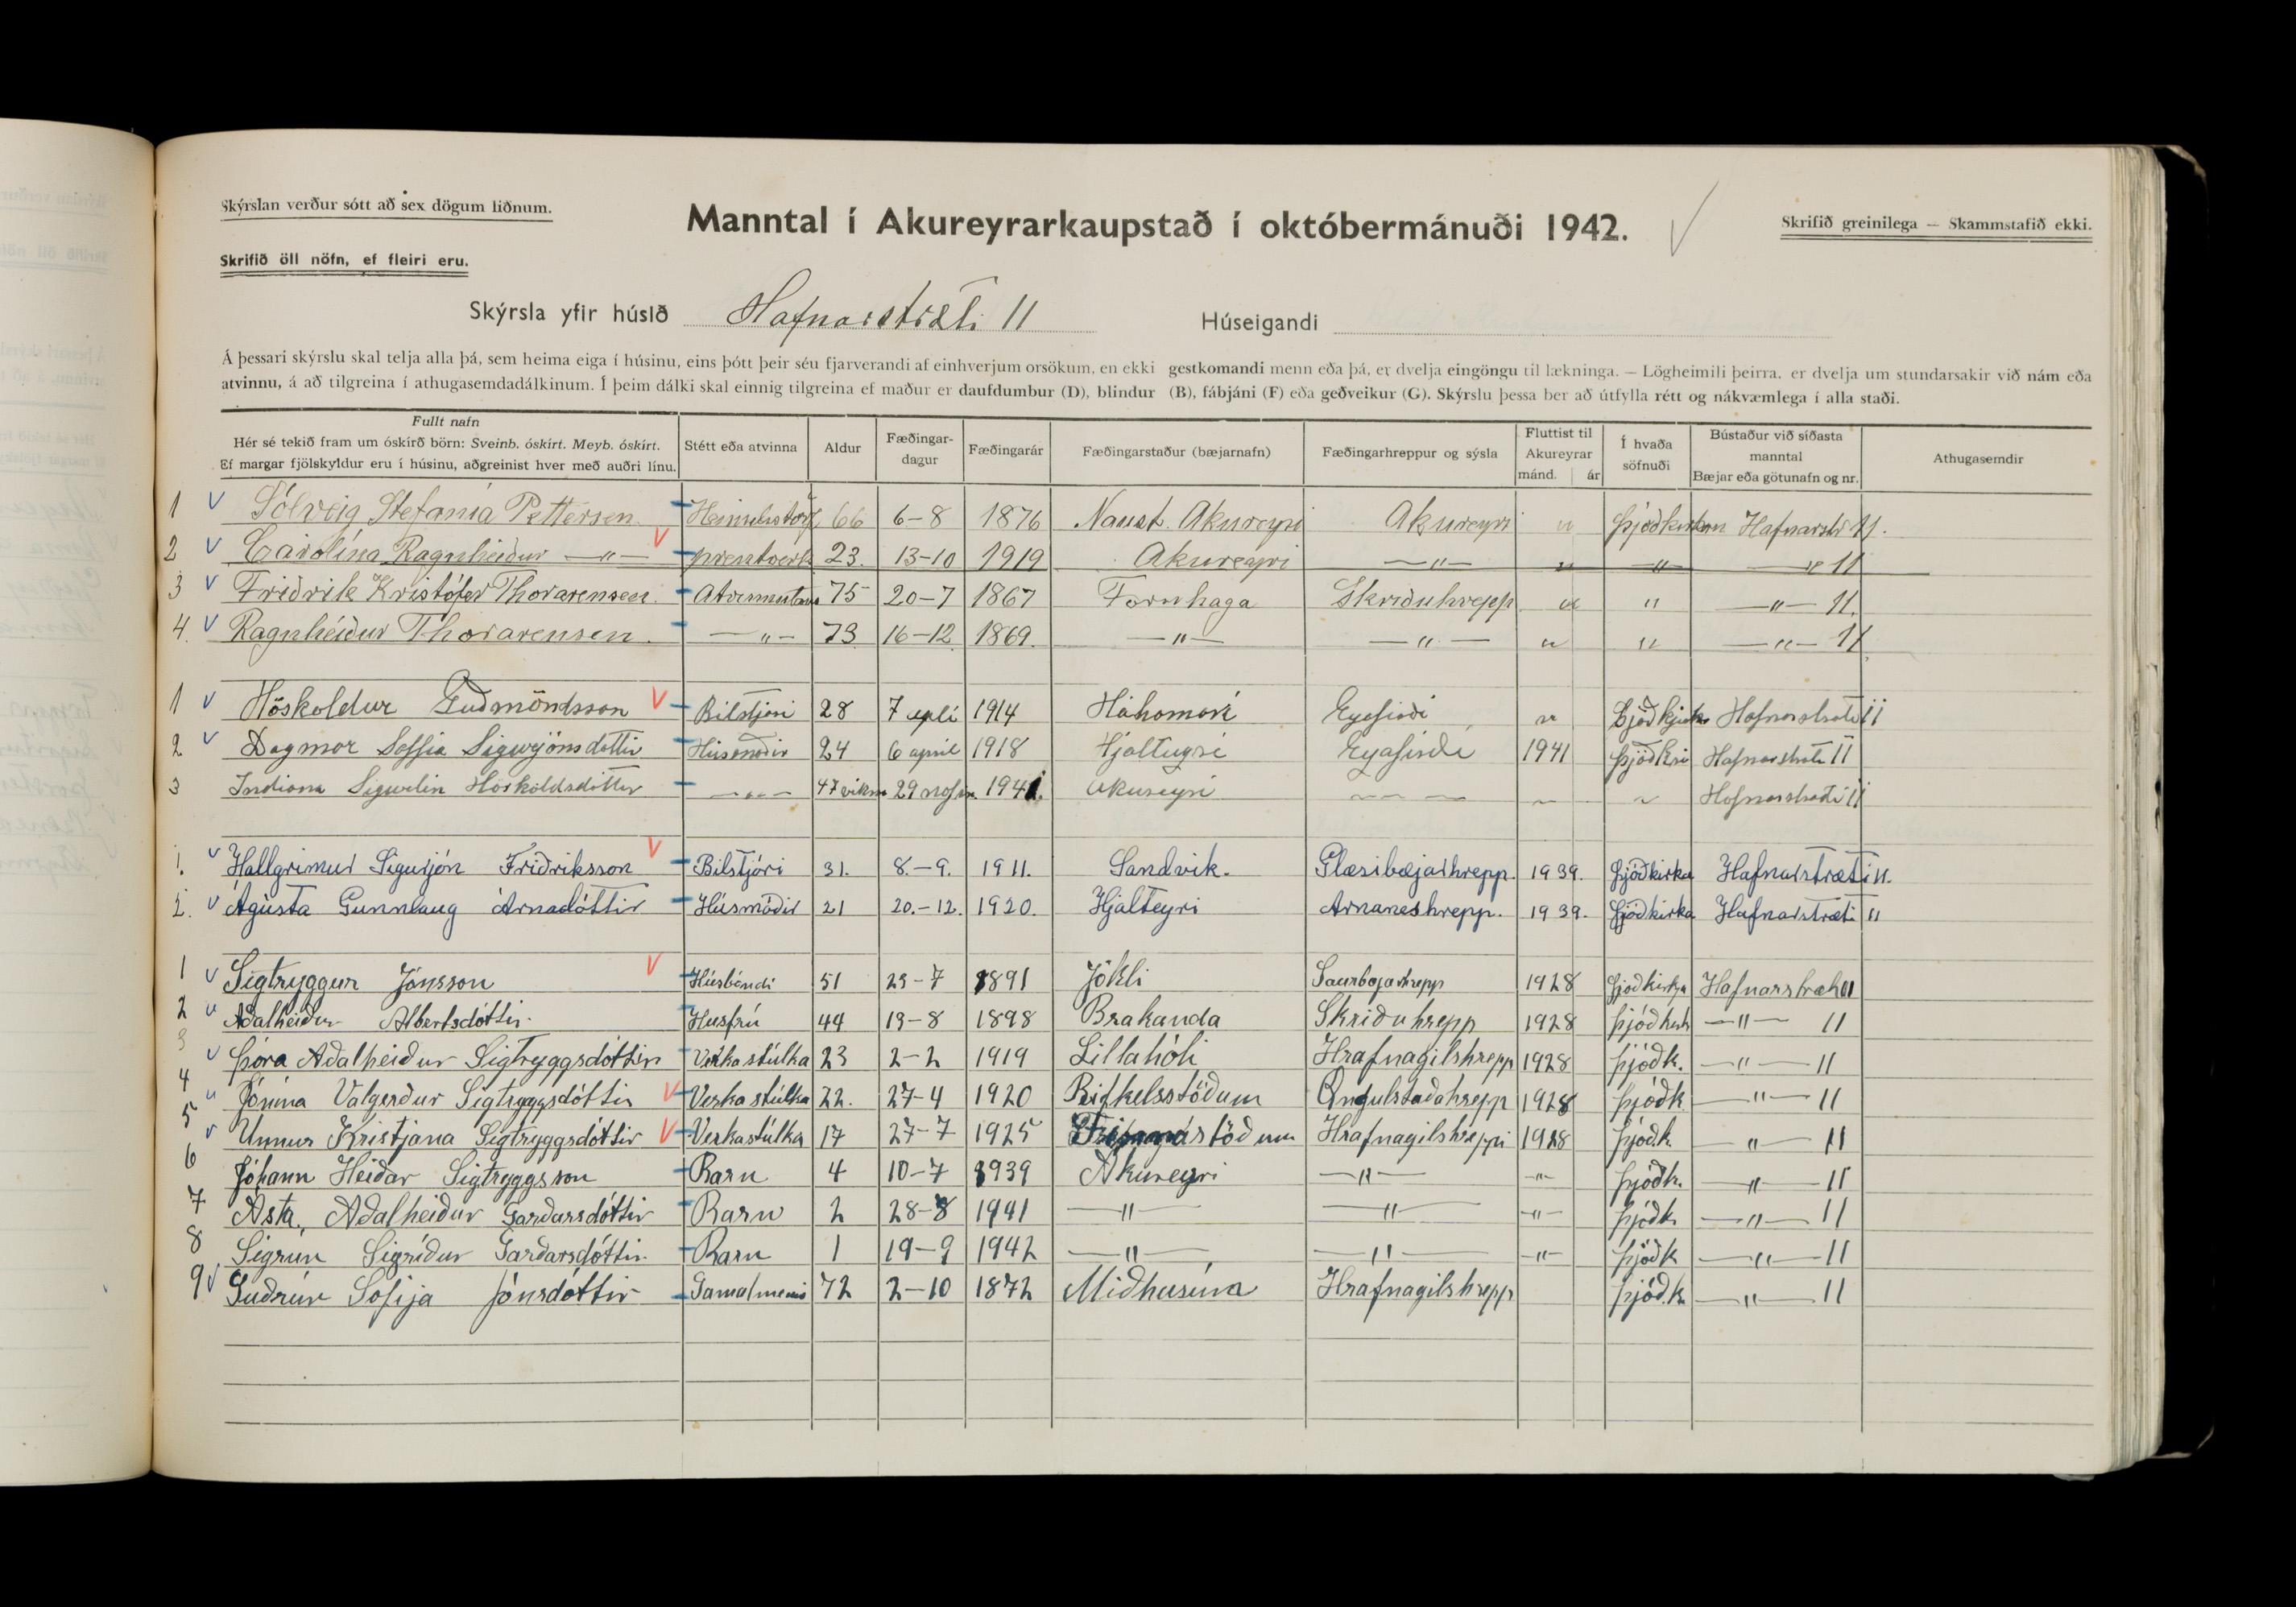 Skýrslan verður sótt að sex dögum liðnum.
Manntal í Akureyrarkaupstað í októbermánuði 1942.
Skrifið greinilega — Skammstafið ekki.
Skrifið öll nöfn, ef fleiri eru.
Skýrsla yfir húsið Hafnarstræti 11 Húseigandi
Á þessari skýrslu skal telja alla þá, sem heima eiga í húsinu, eins þótt þeir séu fjarverandi af einhverjum orsökum, en ekki gestkomandi menn eða þá, er dvelja eingöngu til lækninga. — Lögheimili þeirra. er dvelja um stundarsakir við nám eða
atvinnu, á að tilgreina í athugasemdadálkinum. Í þeim dálki skal einnig tilgreina ef maður er daufdumbur (D), blindur (B), fábjáni (F) eða geðveikur (G). Skýrslu þessa ber að útfylla rétt og nákvæmlega í alla staði.
Fullt nafn
Hér sé tekið fram um óskírð börn: Sveinb. óskírt. Meyb. óskírt.
Ef margar fjölskyldur eru í húsinu, aðgreinist hver með auðri línu.
Stétt eða atvinna
Aldur
Fæðingar-
dagur
Fæðingarár
Fæðingarstaður (bæjarnafn)
Fæðingarhreppur og sýsla
Fluttist til
Akureyrar
mánd. ár
Í hvaða
söfnuði
Bústaður við síðasta
manntal
Bæjar eða götunafn og nr.
Athugasemdir
1 Sólveig Stefanía Pettersen 66 6-8 1876 Naust. Akureyri Akureyri " Þjóðkirkjan Hafnarstr 11.
2 Carolína Ragnheiður —"— prentverk 23. 13-10 1919 Akureyri —"— " —"— —"— 11
3 Friðrik Kristófer Thorarensen 75 20-7 1867 Fornhaga Skriðuhrepp " " —"— 11.
4. Ragnheiður Thorarensen. —"— 73 16-12 1869. —"— —"— " " —"— 11
1 Höskoldur Guðmöndsson Bilstjóri 28 7 1914 " Hafnarstræti 11
2 Dagmar Soffia Sigurjónsdottir Húsmóðir 24 6 april 1918 1941 Hafnarstræti 11
3 Indiana Sigurlin Höskoldsdóttir —"— 47 29 1941. Akureyri Hafnarstræti 11
1. Hallgrimur Sigurjón Friðriksson Bilstjóri 31. 8.-9. 1911. Sandvik. Glæsibæjarhrepp. 1939. Þjóðkirka Hafnarstræti 11.
2. Ágústa Gunnlaug Árnadóttir Húsmóðir 21 20.-12. 1920. Hjalteyri Arnaneshrepp. 1939. Þjóðkirka Hafnarstræti 11
1 Sigtryggur Jónsson Húsbóndi 51 23-7 1891 Jökli Saurbæjarhrepp 1928 Þjóðkirkja Hafnarstræti 11
2 Aðalheiður Albertsdóttir. Husfrú 44 19-8 1898 Brakanda Skriðuhrepp 1928 —"— 11
3 Þóra Aðalheiður Sigtryggsdóttir Verkastúlka 23 2-2 1919 Lillahóli Hrafnagilshrepp 1928 Þjóðk. —"— 11
4 Jónína Valgerður Sigtryggsdóttir Verkastúlka 22. 27-4 1920 Rifkelsstöðum Öngulstaðahrepp 1928 Þjóðk —"— 11
5 Unnur Kristjana Sigtryggsdóttir Verkastúlka 17 27-7 1925 Hrafnagilshreppi 1928 Þjóð.k —"— 11
6 Jóhann Heiðar Sigtryggsson Barn 4 10-7 1939 Akureyri —"— —"— Þjóðk. —"— 11
7 Ásta, Aðalheiður Garðarsdóttir Barn 2 28-8 1941 —"— —"— —"— Þjóðk —"— 11
8 Sigrún Sigríður Garðarsdóttir. Barn 1 19-9 1942 —"— —"— —"— Þjóðk —"— 11
9 Guðrún Sofija Jónsdóttir Gamalmenni 72 2-10 1872 Miðhusum Hrafnagilshrepp Þjóð.k —"— 11